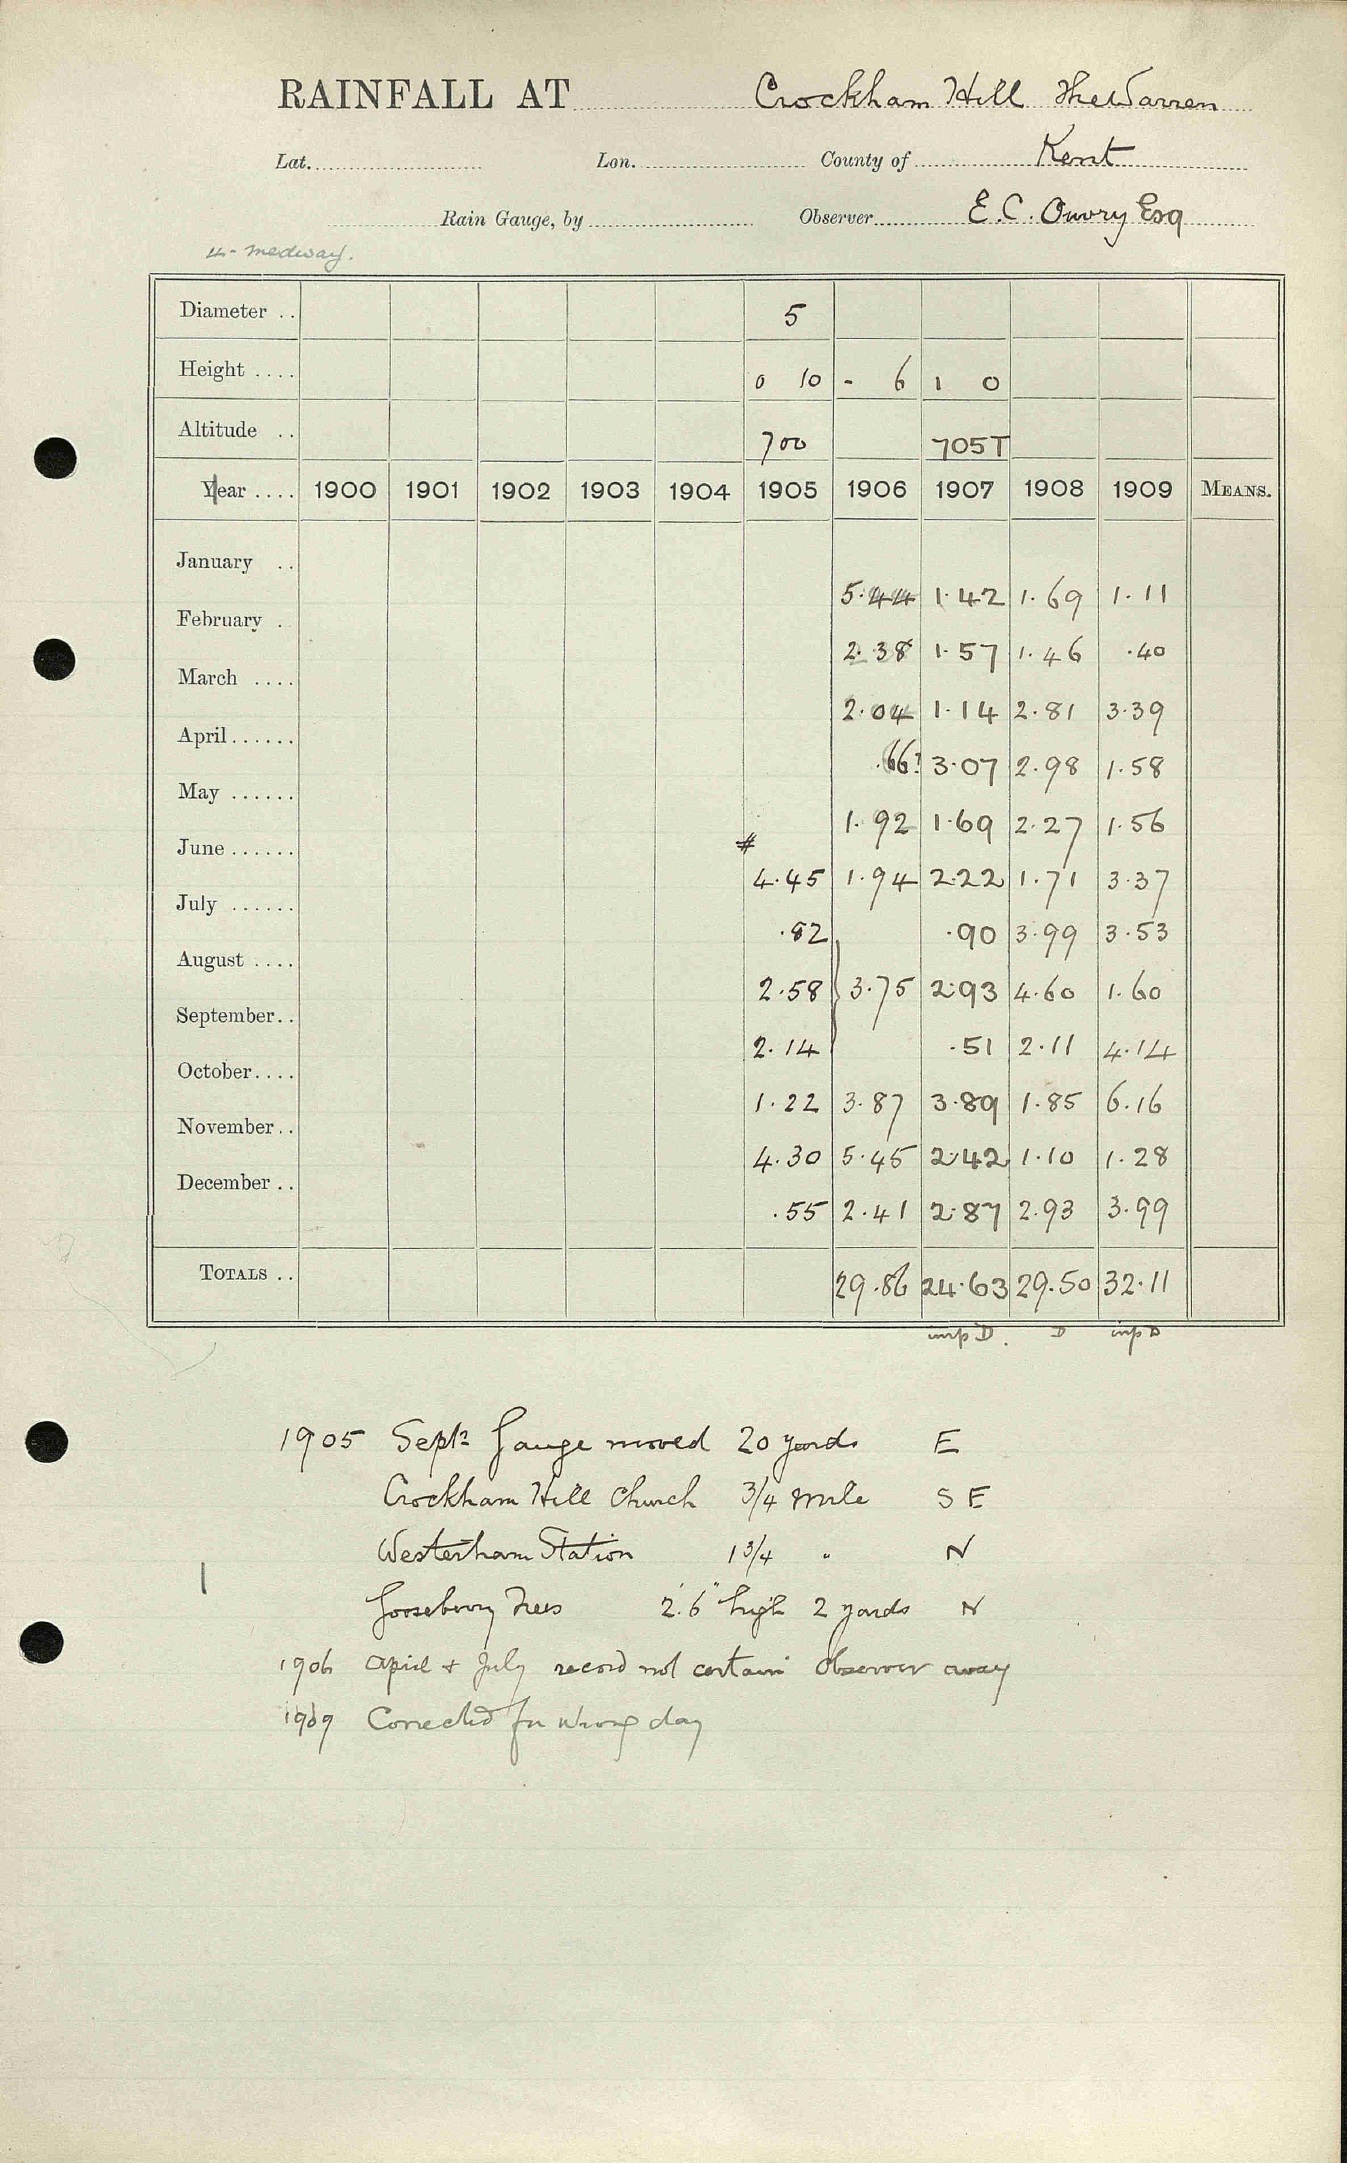 RAINFALL AT Crockham Hill The Warren
Lat. Lon. County of Kent
Rain Gauge, by Observer E. C. Ouvry Esq
4 - Medway.
Diameter .. 5
Height .... 0 10 - 6 1 0
Altitude .. 700 705T
Year .... 1900 1901 1902 1903 1904 1905 1906 1907 1908 1909 MEANS.
January .. 5.44 1.42 1.69 1.11
February . 2.38 1.57 1.46 .40
March .... 2.04 1.14 2.81 3.39
April ...... .66? 3.07 2.98 1.58
May ...... 1.92 1.69 2.27 1.56
#
June ...... 4.45 1.94 2.22 1.71 3.37
July ...... .82 .90 3.99 3.53
August .... 2.58 } 3.75 2.93 4.60 1.60
September.. 2.14 .51 2.11 4.14
October.... 1.22 3.87 3.89 1.85 6.16
November.. 4.30 5.45 2.42 1.10 1.28
December .. .55 2.41 2.87 2.93 3.99
TOTALS .. 29.86 24.63 29.50 32.11
imp D. D imp D
1905 Septr Gauge moved 20 yards E
Crockham Hill Church 3/4 mile S E
Westerham Station 1 3/4 " N
Gooseberry Trees 2'.6" high 2 yards N
1906 April + July record not certain observer away
1909 Corrected for wrong day